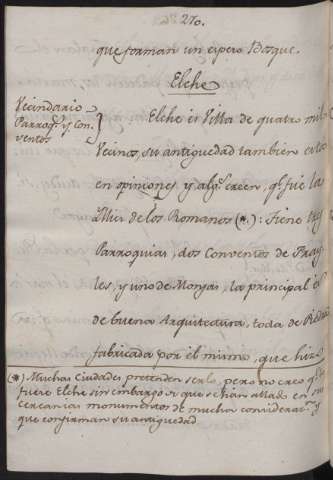 270.
que forman un espero Bosque.
Elche
Vecindario
Parroq.s y Con
ventos
Elche es Villa de quatro mil
Vecinos, su antiguedad tambien està
en opiniones y alg.s creen, q.e fue la
Illici de los Romanos (*): Tiene tres
Parroquias, dos Conventos de Fray
les, y uno de Monjas, la principal es
de buena Arquitectura, toda de Piedra
fabricada por el mismo, que hizo
(*) Muchas Ciudades pretenden serlo, pero no creo q.e lo
fuese Elche sin embargo si que se han allado en sus
cercanias monumentos de mucha considerac.n y
que confirman su antiguedad